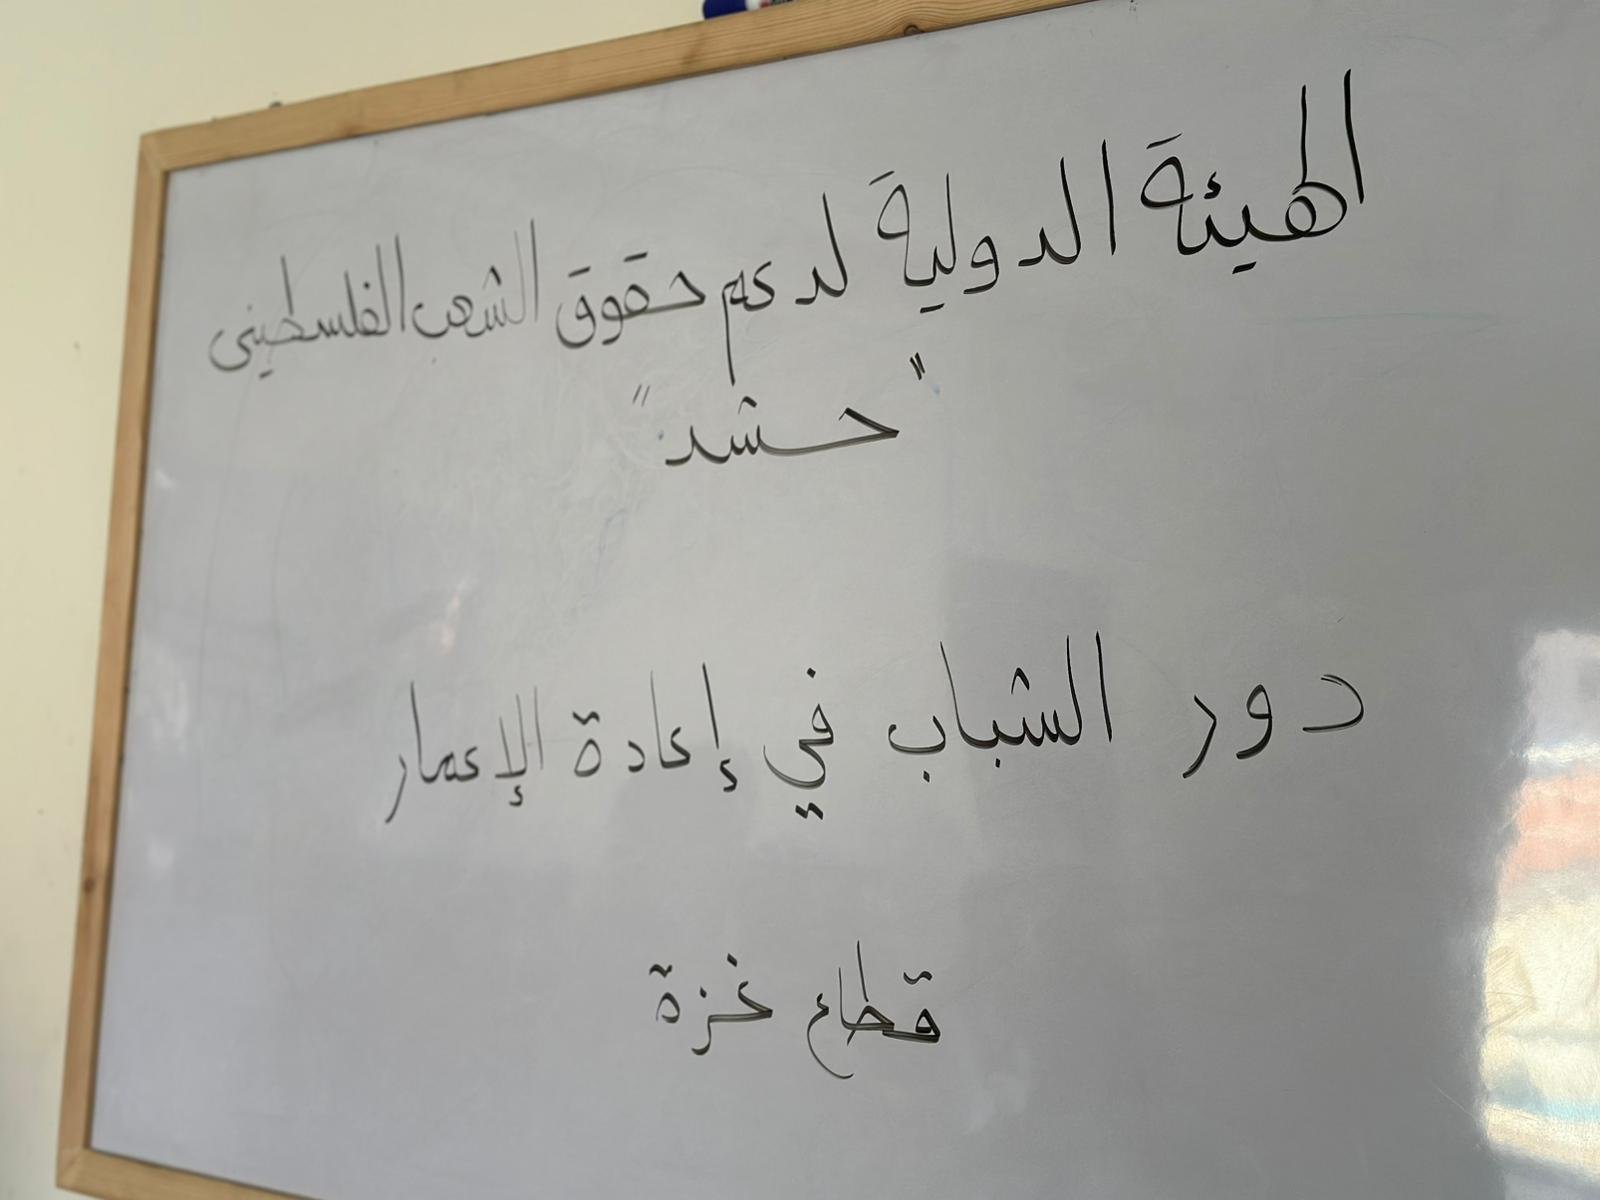 الهيئة الدولية لدعم حقوق الشعب الفلسطيني
"حشد"
دور الشباب في إعادة الإعمار
قطاع غزة